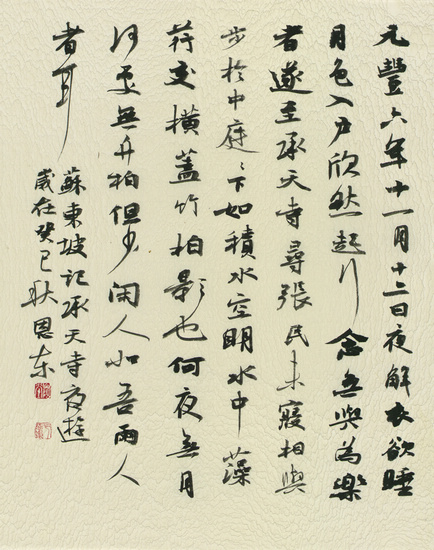 元豐六年十一月十二日夜解衣欲睡
月色入戶欣然起行念無與為樂
者遂至承天寺尋張民未寢相與
步於中庭〻下如積水空明水中藻
荇交橫蓋竹柏影也何夜無月
何處無竹柏但少閑人如吾兩人
者耳
蘇東坡記承天寺夜遊
歲在癸巳恩东